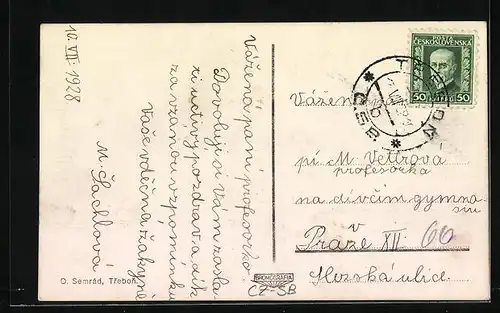 10. VII. 1928
Vážená paní profesorko.
Dovoluji si Vám zasla-
ti uctivý pozdrav a dík
za vzácnou vzpomínku
Vaše vděčná žákyně
M. Šachlová
O. Semrád, Třeboň.
BROMOGRAFIA
CZ-SB
POŠTA
ČESKOSLOVENSKA
50 50
TŘEBOŇ
Vážená paní
pí M. Vettrova
profesorka
na dívčím gymna-
siu
v
Praze XII. 66
Slezská ulice.